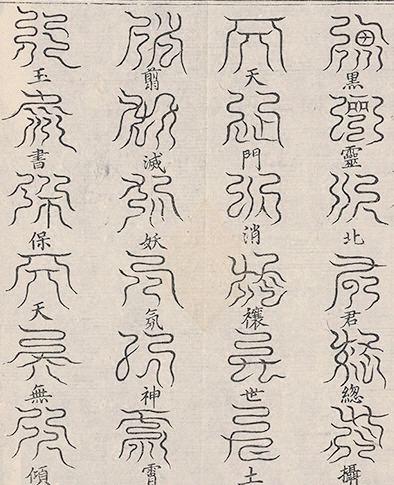 黑靈北君總攝
天門消禳世土
翦滅妖氛神霄
玉書保天無傾